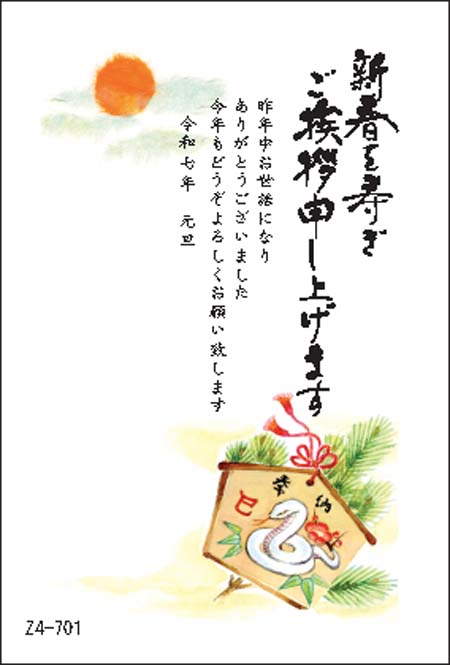 新春を寿ぎ
ご挨拶申し上げます
昨年中お世話になり
ありがとうございました
今年もどうぞよろしくお願い致します
令和七年　元旦
奉納
巳
Z4-701